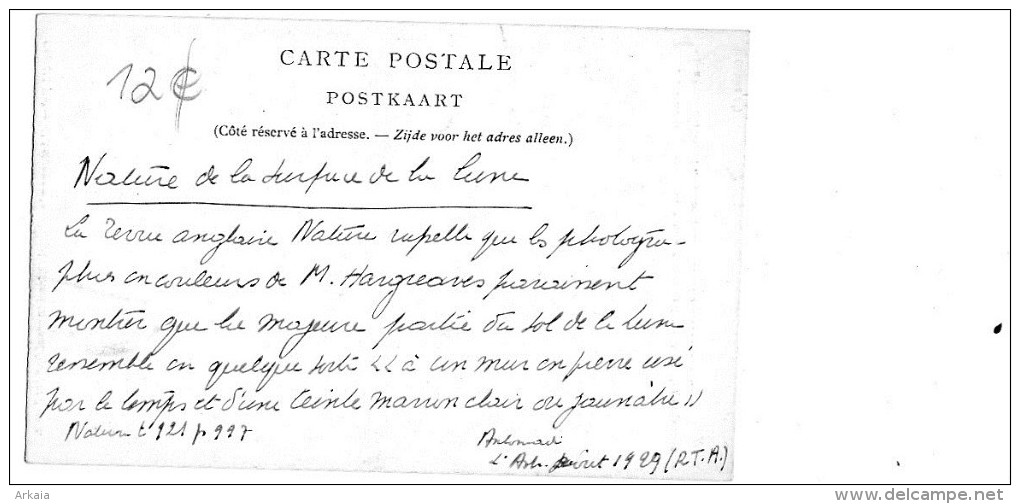 12€
CARTE POSTALE
POSTKAART
(Côté réservé à l'adresse. — Zijde voor het adres alleen.)
Nature de la surface de la Lune
La revue anglaise Nature rappelle que les photogra-
phies en couleurs de M. Hargreaves paraissent
montrer que la majeure partie du sol de la Lune
ressemble en quelque sorte << à un mur en pierre usé
par le temps et d'une teinte marron clair ou jaunâtre >>
Nature t 121 p 997
L'Astr. 1929 (R.T.A.)
Arkaia
www.delcampe.net